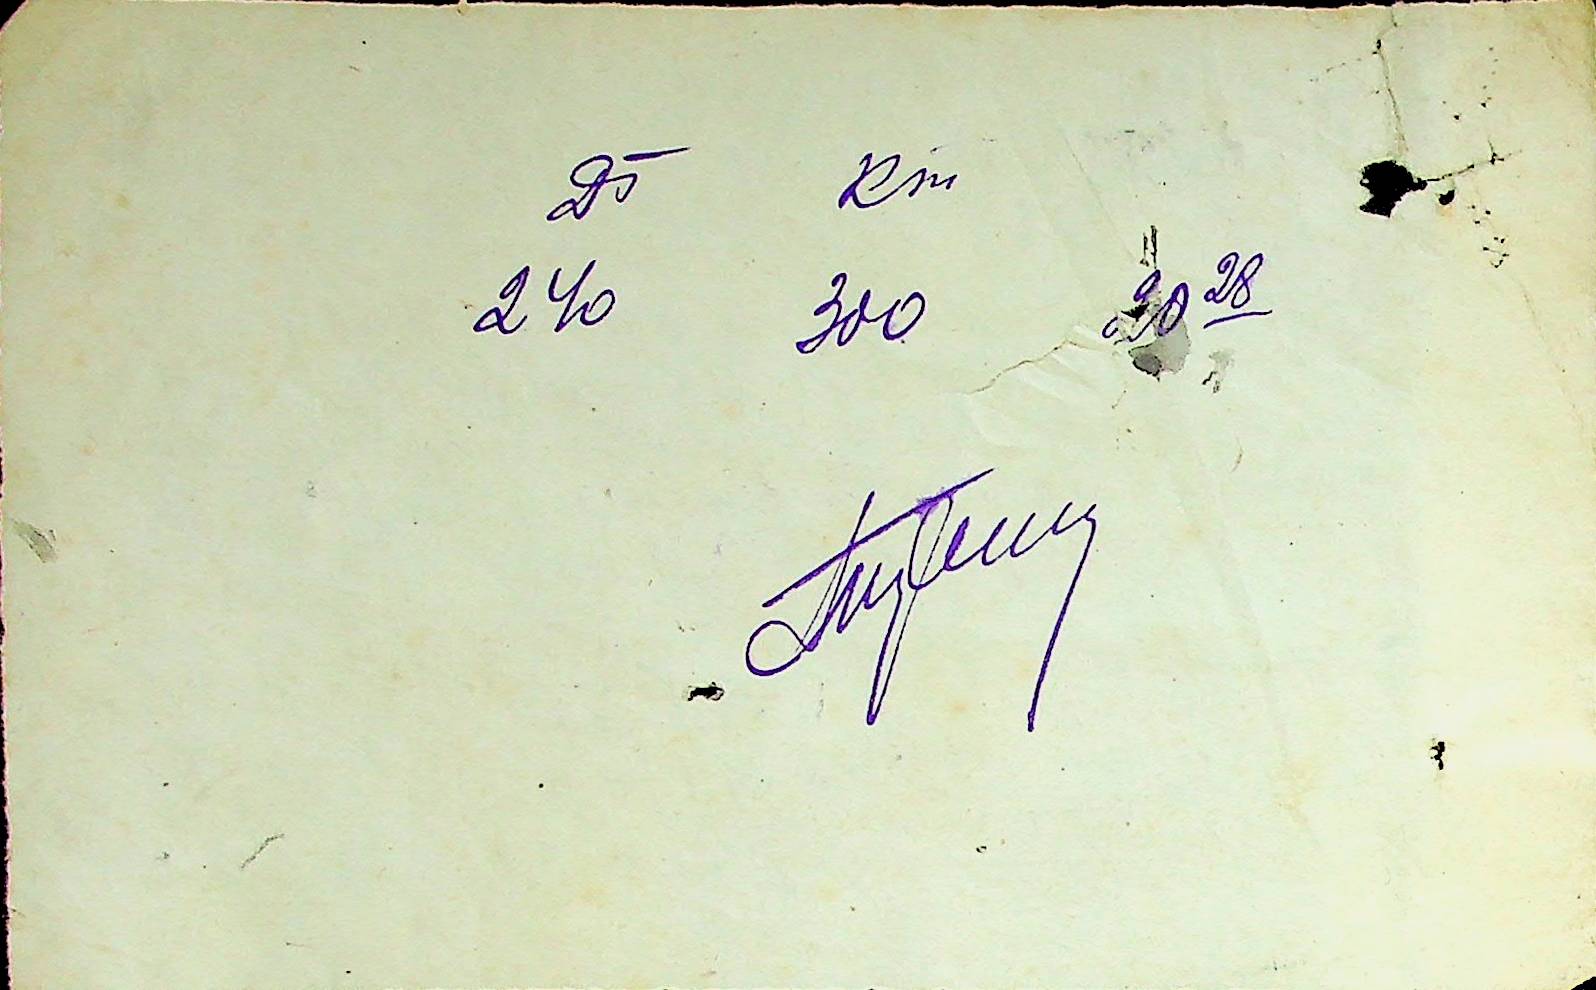 Дт Кт
240 300 20 28